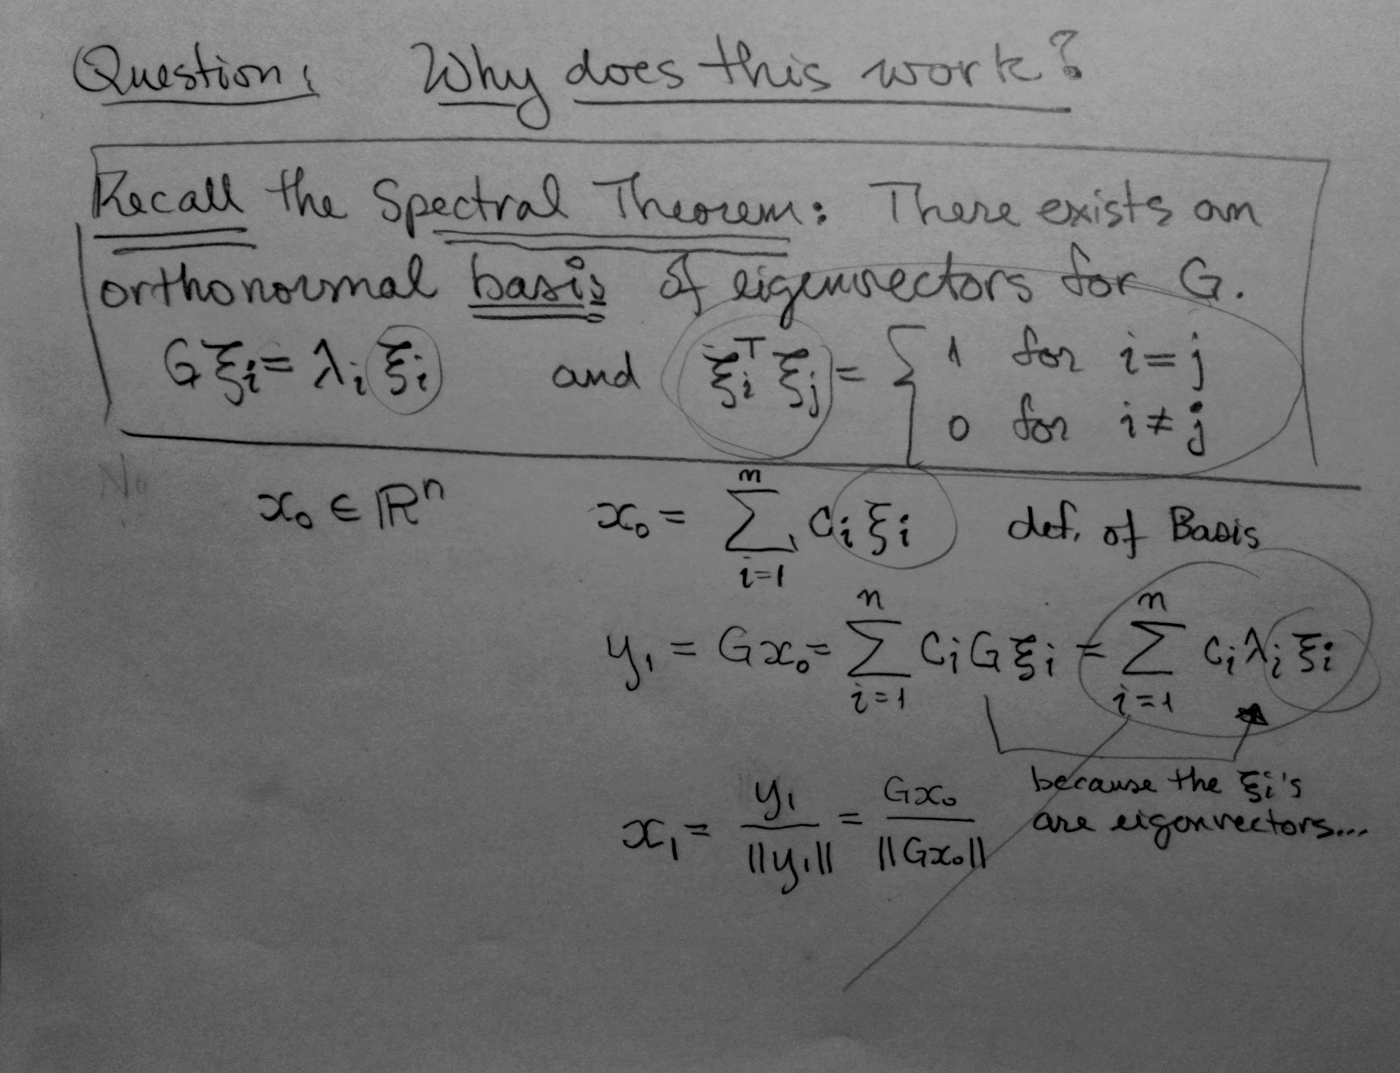 Question: Why does this work?
Recall the Spectral Theorem: There exists an
orthonormal basis of eigenvectors for G.
Gξᵢ = λᵢ ξᵢ and ξᵢᵀ ξⱼ = { 1 for i = j
0 for i ≠ j
x₀ ∈ ℝⁿ x₀ = ∑ᵢ₌₁ⁿ cᵢ ξᵢ def. of Basis
y₁ = Gx₀ = ∑ᵢ₌₁ⁿ cᵢ G ξᵢ = ∑ᵢ₌₁ⁿ cᵢ λᵢ ξᵢ
because the ξᵢ's
are eigenvectors...
x₁ = y₁ / ||y₁|| = Gx₀ / ||Gx₀||